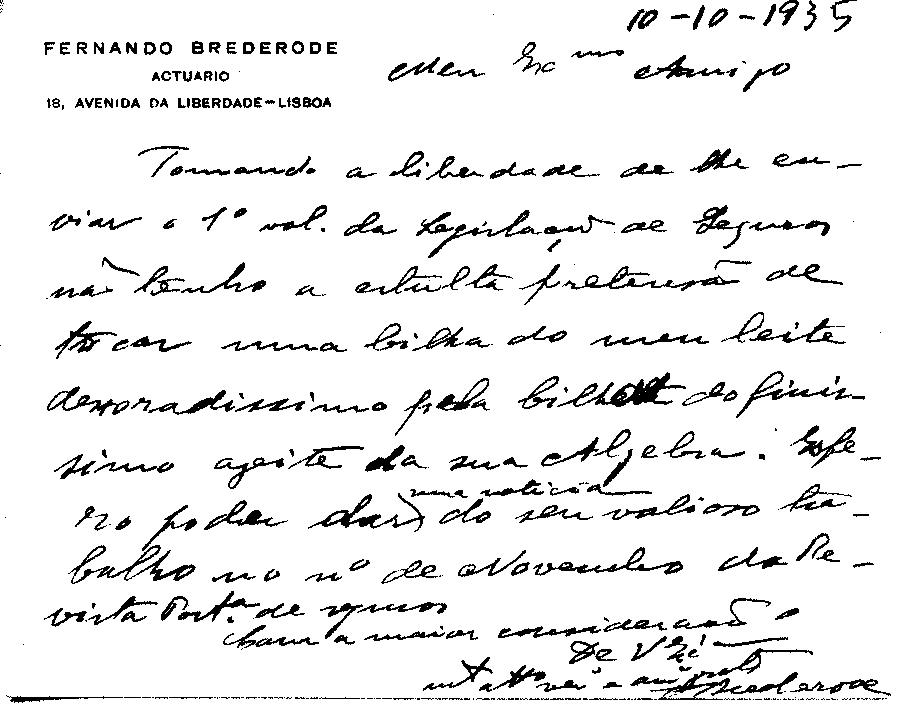 10-10-1935
FERNANDO BREDERODE
ACTUARIO
18, AVENIDA DA LIBERDADE-LISBOA
Meu Exmo Amigo
Tomando a liberdade de lhe en-
viar o 1º vol. da Legislação de Seguros
não tenho a estulta pretensão de
trocar uma bilha do meu leite
desnoradissimo pela bilha do finis-
simo azeite da sua Algebra. Espe-
ro poder dar uma noticia do seu valioso tra-
balho no nº de Novembro da Re-
vista Port.ª de seguros
Com a maior consideração
De V. Exª
mt attº ven e
Brederode